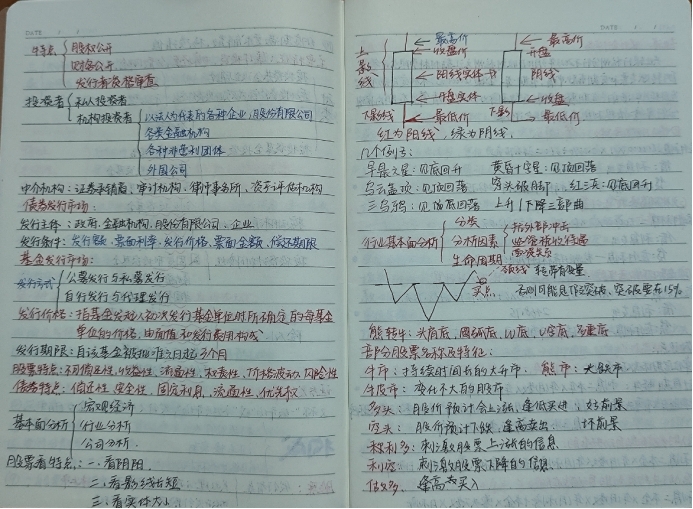 特点 股权公开
财务公开
发行者资格审查
投资者 私人投资者
机构投资者 以法人为代表的各种企业:股份有限公司
各类金融机构
各种非营利团体
外国公司
中介机构:证券承销商,审计机构,律师事务所,资产评估机构
债券发行市场:
发行主体:政府,金融机构,股份有限公司,企业
发行条件:发行额,票面利率,发行价格,票面金额,偿还期限
基金发行市场:
发行方式 公募发行与私募发行
自行发行与代理发行
发行价格:指基金发起人初次发行基金单位时所确定的每基金
单位的价格,由面值和发行费用构成
发行期限:自该基金被批准之日起三个月
股票特点:不可偿还性,收益性,流通性,权责性,价格波动,风险性
债券特点:偿还性,安全性,固定利息,流通性,优先权
基本面分析 宏观经济
行业分析
公司分析
股票看特点:一.看阴阳
二.看影线长短
三.看实体大小
上影线 最高价 最高价
收盘价 开盘
阳线实体 阴线
开盘实体 收盘
下影线 最低价 下影 最低价
红为阳线,绿为阴线.
几个例子:
早晨之星:见底回升 黄昏十字星:见顶回落
乌云盖顶:见顶回落 穿头破脚 红三兵:见底回升
三乌鸦:见顶回落 上升/下降三部曲
行业基本面分析 分类
分析因素
生命周期
颈线
买点 突破要在15%
熊转牛:头肩底,圆弧底,W底,V字底,多重底
部分股票名称及特征:
牛市:持续时间长的大升市. 熊市:大跌市
牛皮市:变化不大的股市
多头:股价预计会上涨,逢低买进;好前景
空头:股价预计下跌,逢高卖出 坏前景
利多:刺激股票上涨的信息
利空 刺激股票下降的信息
做多 买入